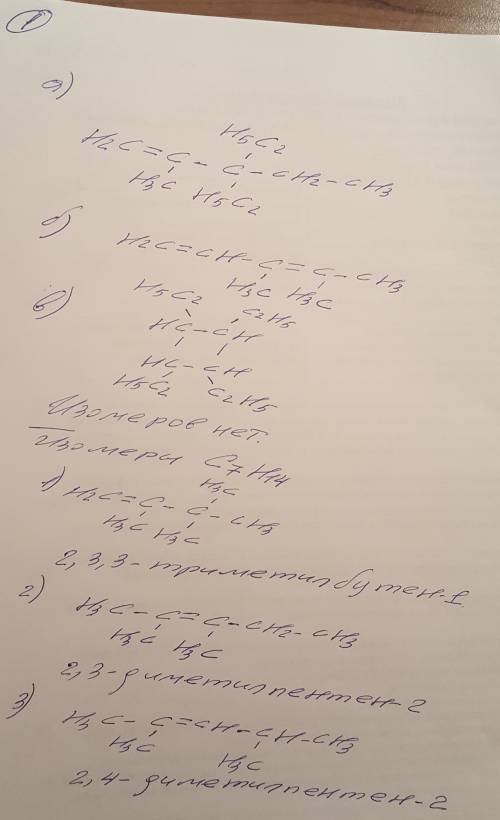 1
а)
H5C2
H2C=C-C-CH2-CH3
H3C H5C2
б)
H2C=CH-C=C-CH3
H3C H3C
в)
H5C2 C2H5
HC-CH
HC-CH
H5C2 C2H5
Изомеров нет.
Изомеры C7H14
1)
H3C
H2C=C-C-CH3
H3C H3C
2,3,3-триметилбутен-1
2)
H3C-C=C-CH2-CH3
H3C H3C
2,3-диметилпентен-2
3)
H3C-C=CH-CH-CH3
H3C H3C
2,4-диметилпентен-2